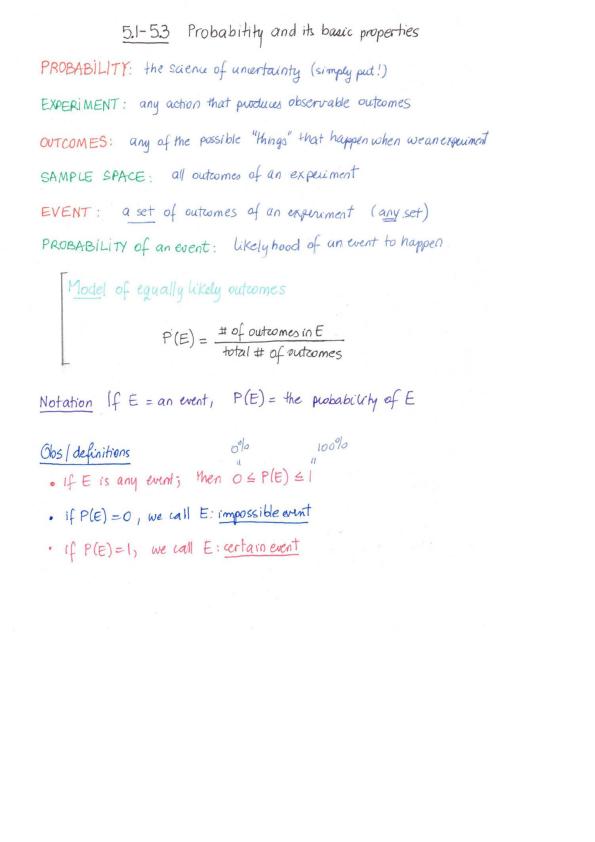 5.1-5.3 Probability and its basic properties
PROBABILITY: the science of uncertainty (simply put!)
EXPERIMENT: any action that produces observable outcomes
OUTCOMES: any of the possible "things" that happen when we an experiment
SAMPLE SPACE: all outcomes of an experiment
EVENT: a set of outcomes of an experiment (any set)
PROBABILITY of an event: likelyhood of an event to happen
Model of equally likely outcomes
P(E) = # of outcomes in E / total # of outcomes
Notation If E = an event, P(E) = the probability of E
Obs/definitions
0% 100%
" "
• If E is any event; then 0 ≤ P(E) ≤ 1
• if P(E)=0, we call E: impossible event
• if P(E)=1, we call E: certain event